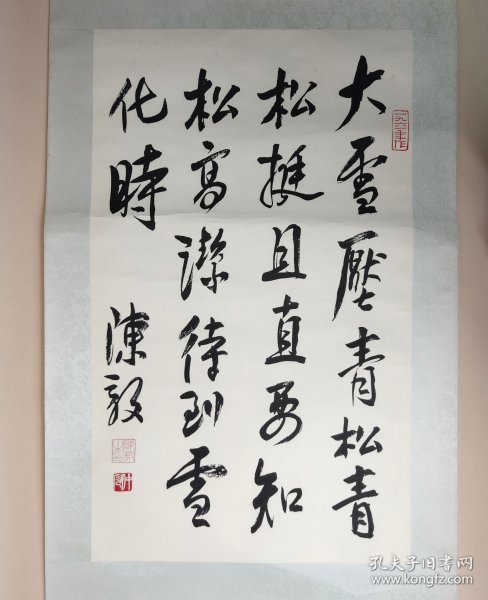 大雪壓青松青
松挺且直要知
松高潔待到雪
化時
陳毅
孔夫子旧书网
www.kongfz.com